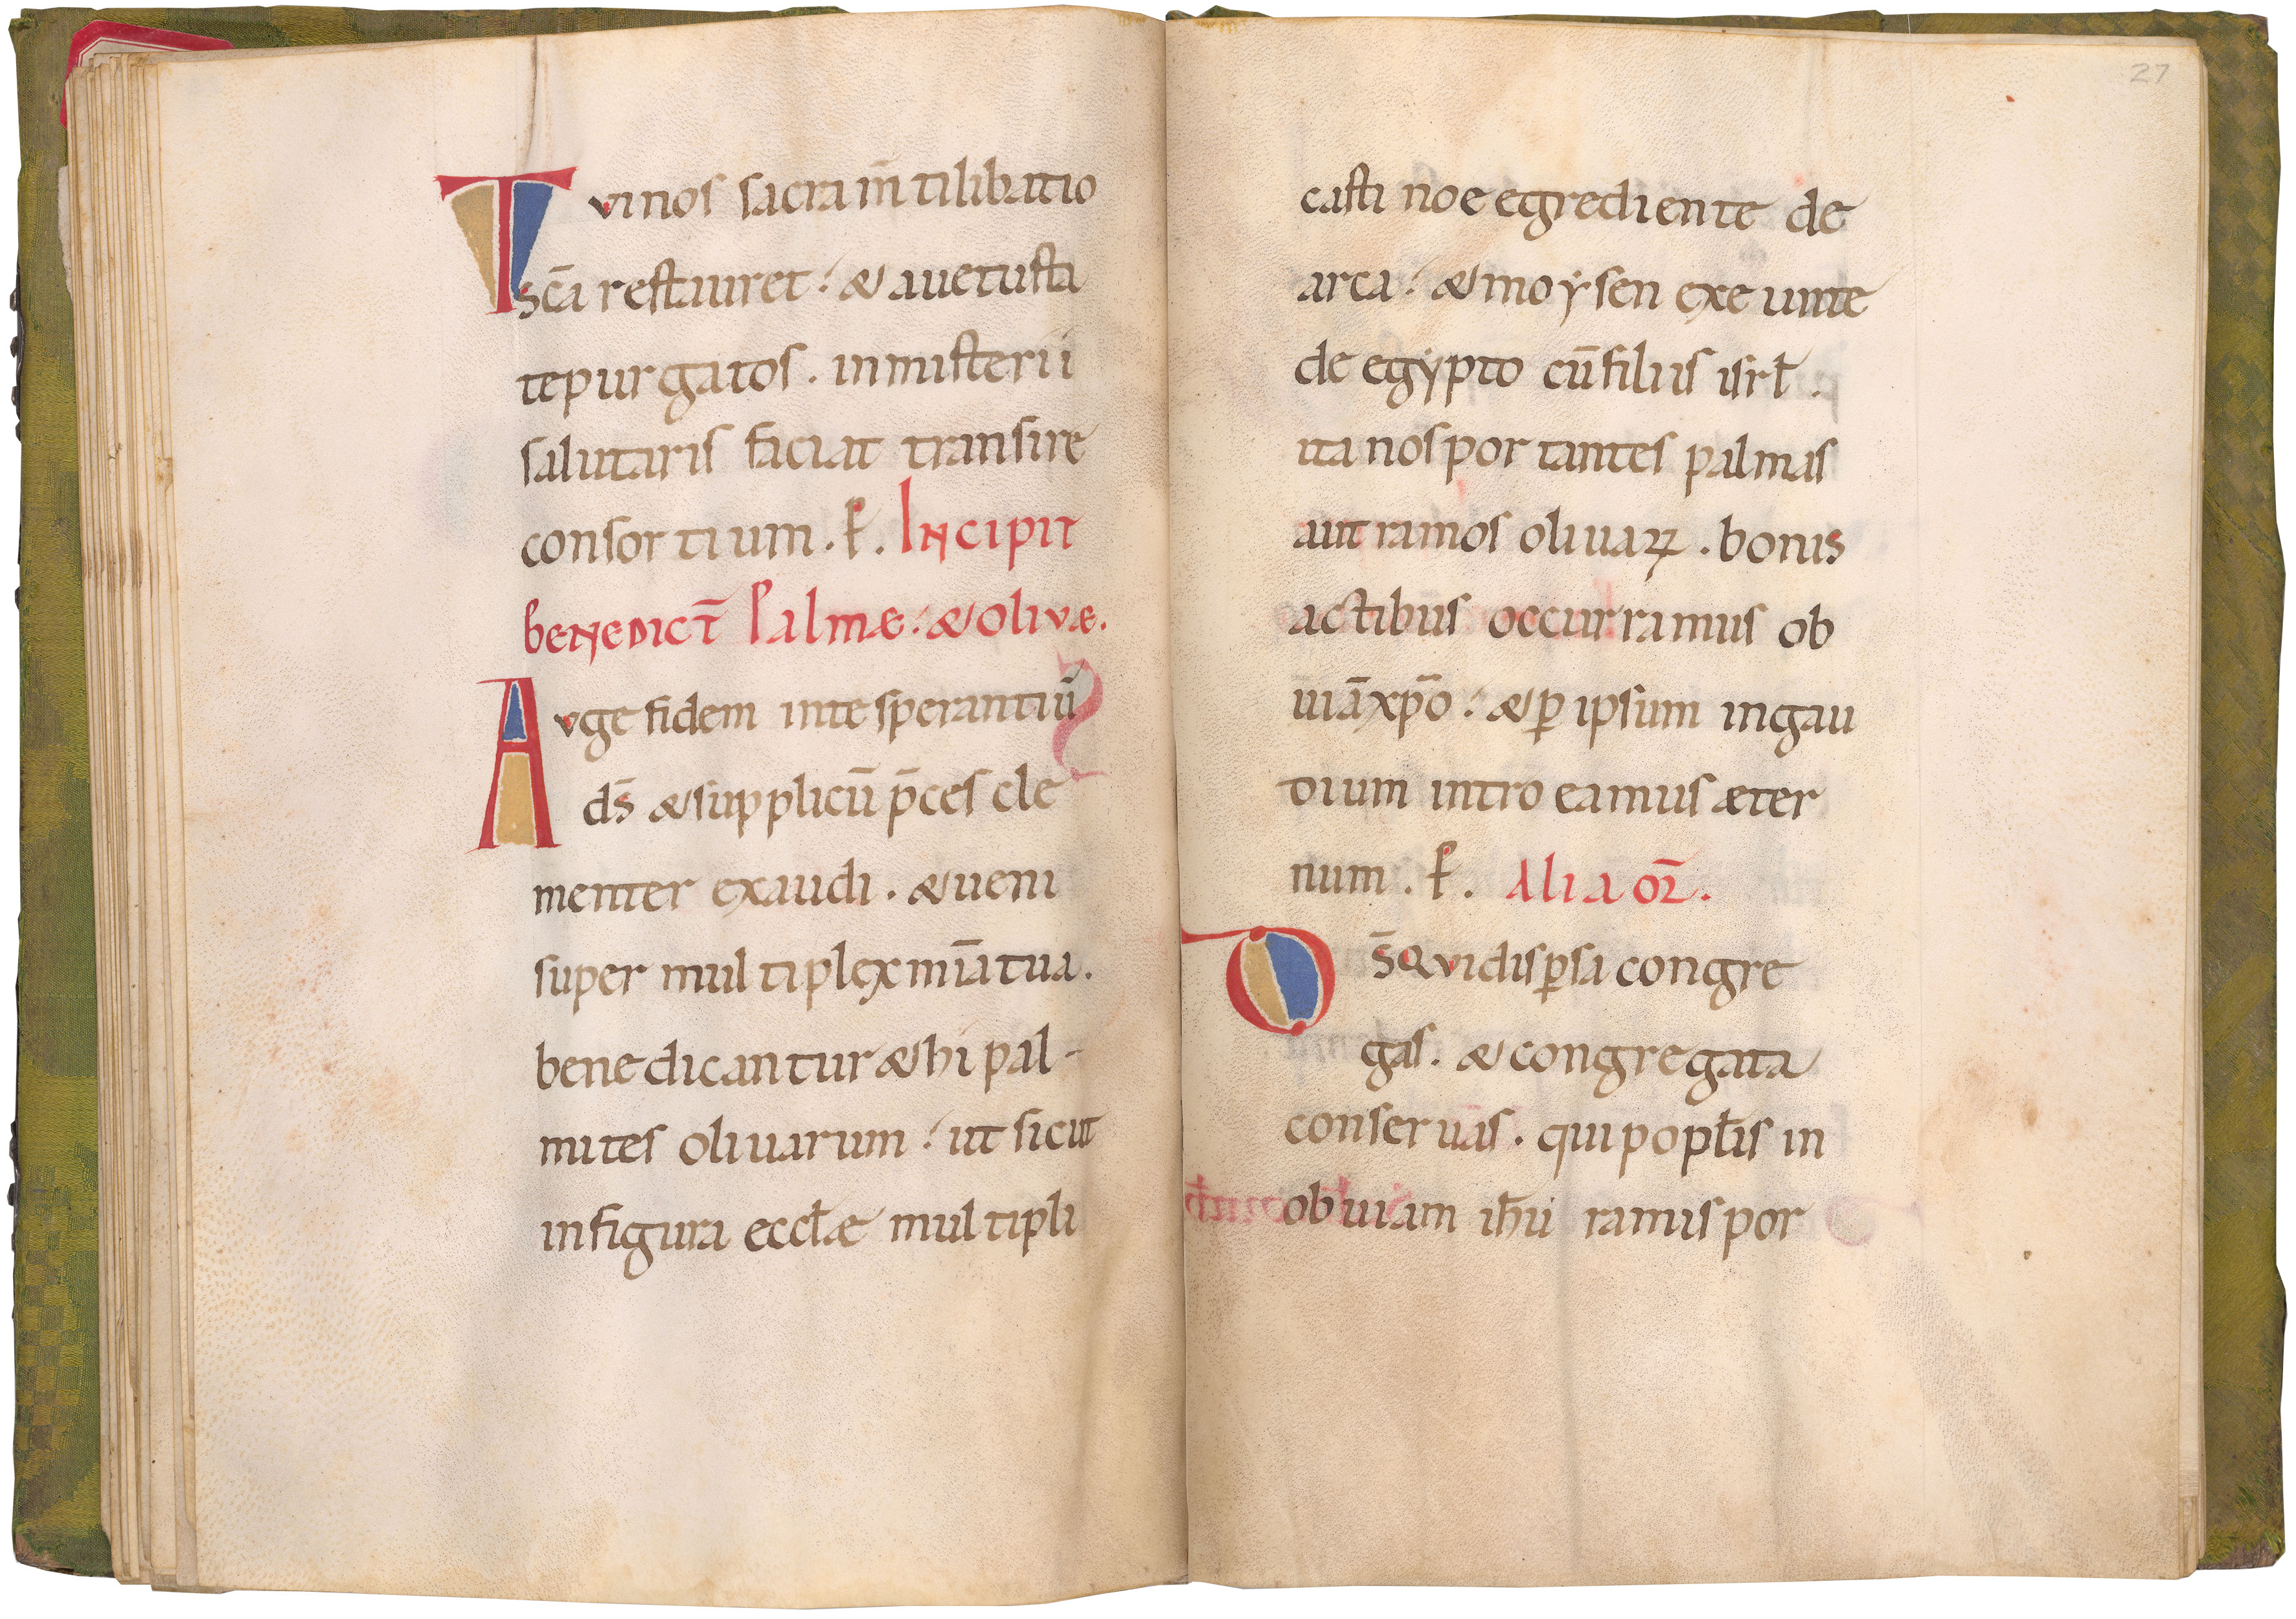 Tvi nos sacram̄ti libatio
sc̄a restauret · & a uetusta
te purgatos . in misterii
salutaris faciat transire
consortium . ꝑ . Incipit
benedict̄ Palmæ · & olivæ .
Avge fidem in te sperantiū
ds̄ & supplicū p̄ces cle
menter exaudi . & ueni
super multiplex mīa tua .
benedicantur & hi pal-
mites oliuarum · ut sicut
in figura eccłæ multipli
27
casti noe egrediente de
arca · & moẏsen exeunte
de egẏpto cū filiis isrł .
ita nos portantes palmas
aut ramos oliuaꝝ . bonis
actibus occurramus ob
uiā xp̄o · & ꝑ ipsum in gau
dium introeamus æter
num . ꝑ . Alia or̄ .
Ds̄ qvi disꝑsa congre
gas . & congregata
conseruas . qui popłis in
obuiam ihū ramis por